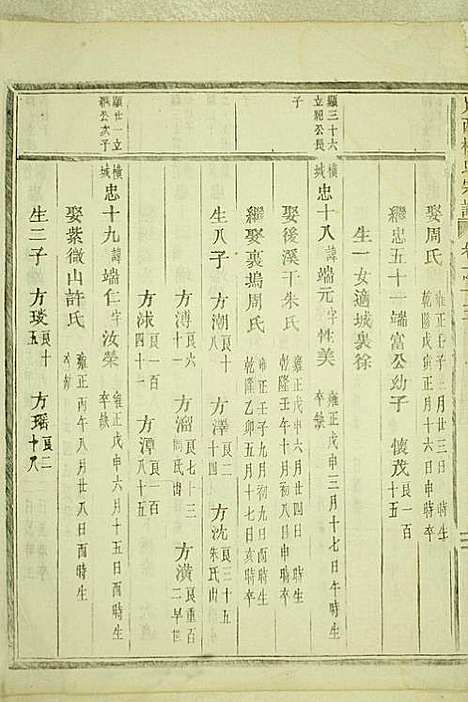 娶周氏
雍正 三月廿三日 時生
乾隆戊寅十月十六日申時卒
繼忠五十一端富公幼子 懷茂 良一百一
生一女適城裏徐
顯三十六立紀公長子
橫城
忠十八 諱端元 字性美 雍正戊申三月十七日午時生 卒缺
娶後溪干朱氏
雍正戊申六月廿四日 時生
乾隆壬午十月初八日申時卒
繼娶裏塢周氏
雍正壬子九月初九日辰時生
乾隆乙卯五月十七日亥時卒
生八子 方潮 良十八 方澤 良二十四 方沈 良三十五 朱氏出
方溥 良六十一 方溜 良七十三 周氏出 方潢 良重百二 早世
方洣 良一百四十一 方潭 良一百八十五
顯廿一立綱公次子
橫城
忠十九 諱端仁 字汝榮 雍正戊申六月十五日酉時生 卒缺
娶紫微山許氏
雍正丙午八月廿八日酉時生
卒缺
生二子 方琰 良十五 方瑤 良二十八